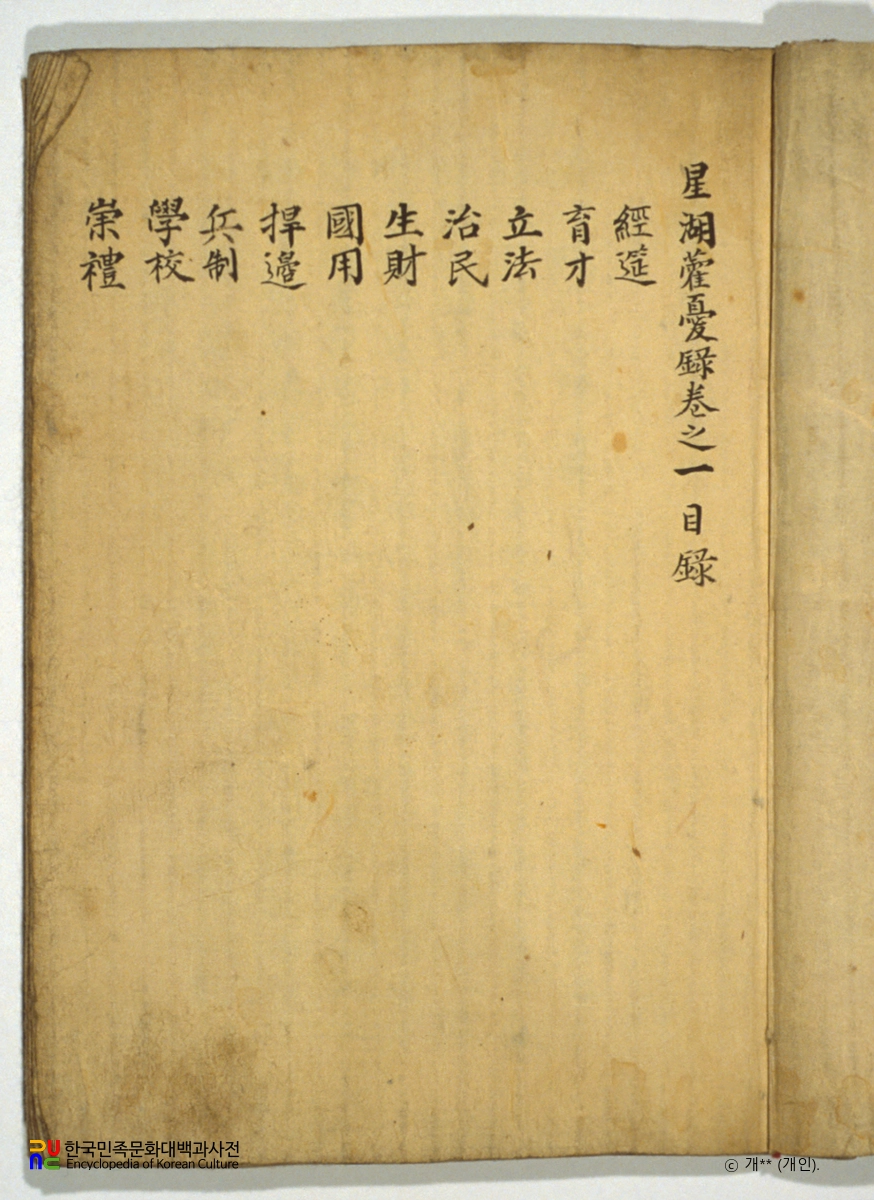 星湖藿憂錄卷之一 目錄
經筵
育才
立法
治民
生財
國用
捍邊
兵制
學校
崇禮
한국민족문화대백과사전
Encyclopedia of Korean Culture
ⓒ 개** (개인).